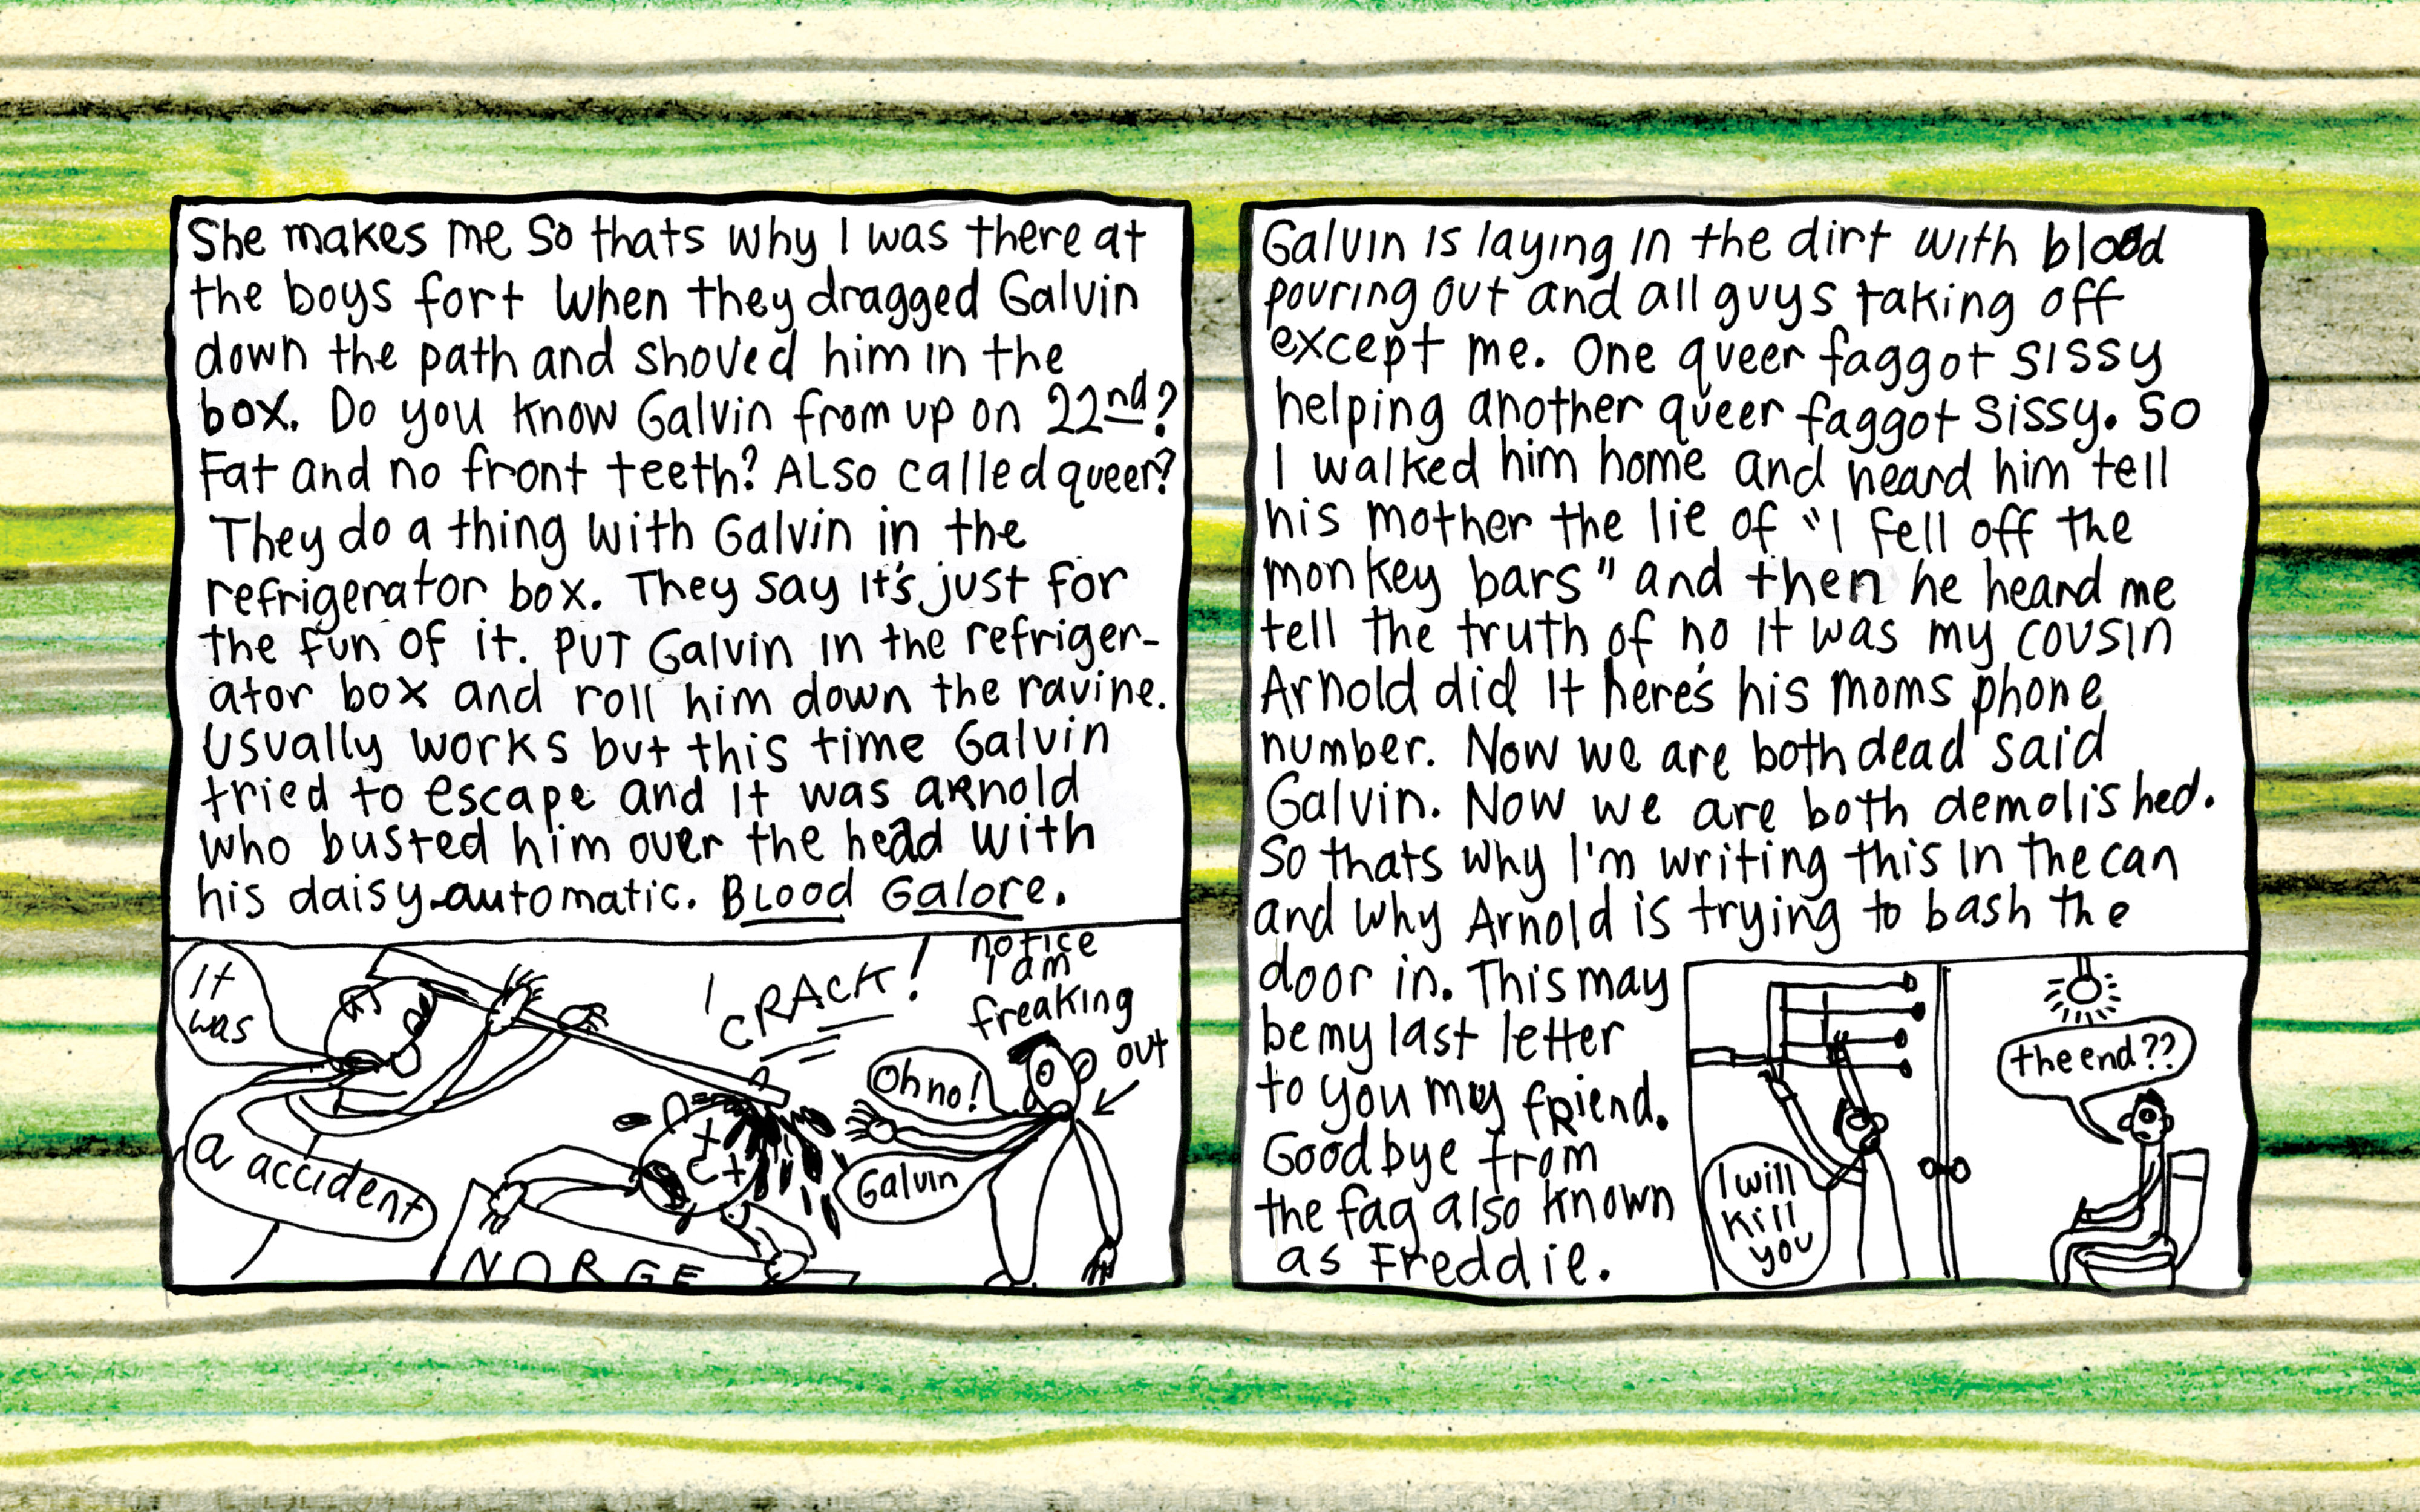 She makes me So thats why I was there at
the boys fort when they dragged Galvin
down the path and shoved him in the
box. Do you know Galvin from up on 22nd?
Fat and no front teeth? ALSO called queer?
They do a thing with Galvin in the
refrigerator box. They say it's just for
the fun of it. PUT Galvin in the refriger-
ator box and roll him down the ravine.
Usually works but this time Galvin
tried to escape and it was arnold
who busted him over the head with
his daisy automatic. BLOOD Galore.
It
was
a accident
CRACK!
notice
I am
freaking
out
Oh no!
Galvin
NORGE
Galvin is laying in the dirt with blood
pouring out and all guys taking off
except me. One queer faggot sissy
helping another queer faggot sissy. So
I walked him home and heard him tell
his mother the lie of "I fell off the
monkey bars" and then he heard me
tell the truth of no it was my cousin
Arnold did it here's his moms phone
number. Now we are both dead said
Galvin. Now we are both demolished.
So thats why I'm writing this in the can
and why Arnold is trying to bash the
door in. This may
be my last letter
to you my friend.
Good bye from
the fag also known
as Freddie.
I will
kill
you
the end??